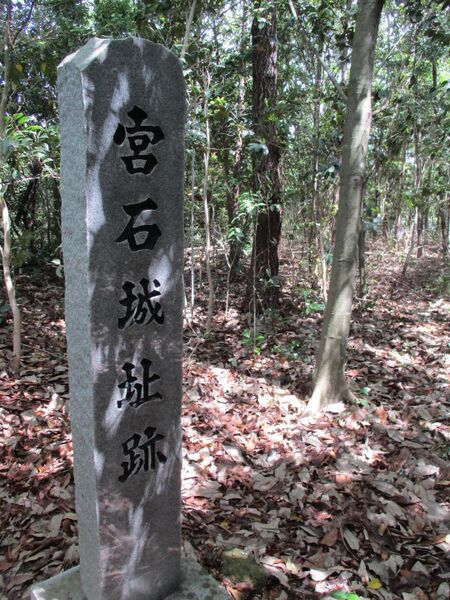 宮石城址跡